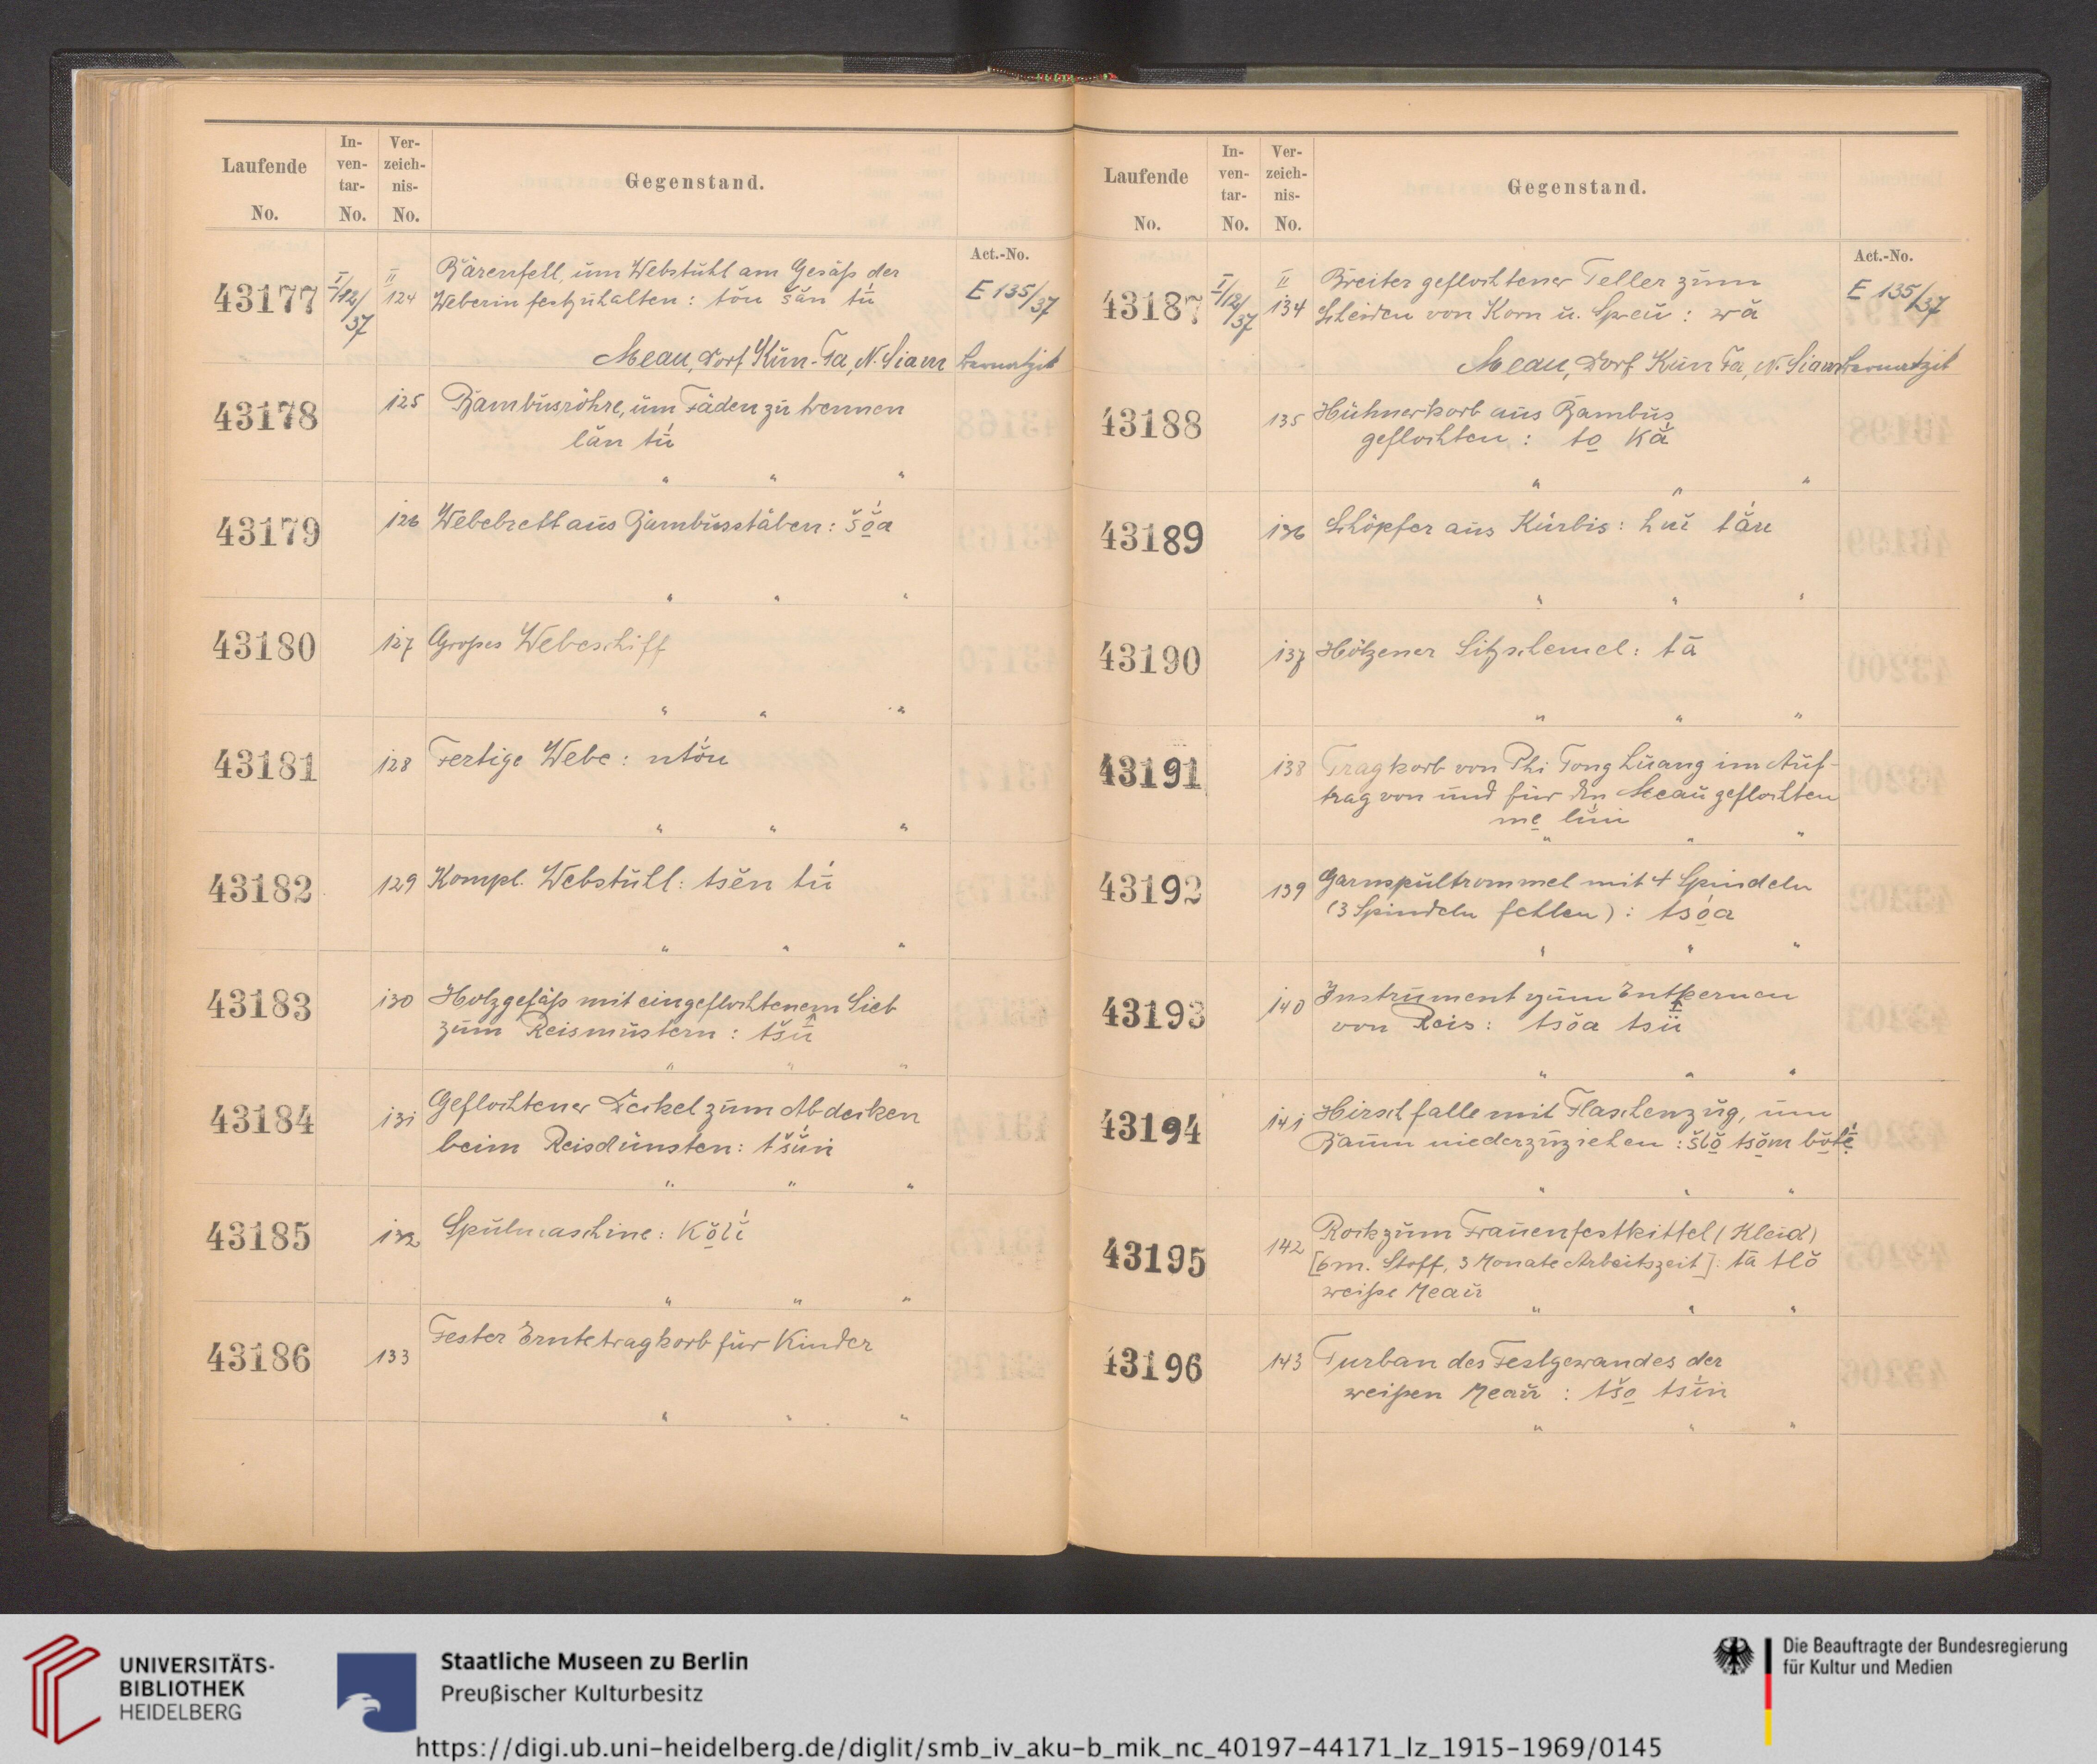 Laufende No.
In-ven-tar-No.
Ver-zeich-nis-No.
Gegenstand.
Act.-No.
43177 I/12/37 II 124 Bärenfell, um Webstuhl am Gesäß der
Weberin festzuhalten: tŏn šăn tū́
E 135/37
Meau, Dorf Kun-Ta, N. Siam Bernatzik
43178 125 Bambusröhre, um Fäden zu trennen
lăn tū́
" " "
43179 126 Webebrett aus Bambusstäben: šŏ̱́a
" " "
43180 127 Großes Webeschiff
" " "
43181 128 Fertige Webe: ntŏ́n
" " "
43182 129 Kompl. Webstuhl: tsĕn tū́
" " "
43183 130 Holzgefäß mit eingeflochtenem Sieb
zum Reismustern: tšū
" " "
43184 131 Geflochtener Deckel zum Abdecken
beim Reisdünsten: tšŭ́ni
" " "
43185 132 Spulmaschine: Kŏ̱lĭ́
" " "
43186 133 Fester Erntetragkorb für Kinder
" " "
Laufende No.
In-ven-tar-No.
Ver-zeich-nis-No.
Gegenstand.
Act.-No.
43187 I/12/37 II 134 Breiter geflochtener Teller zum
Scheiden von Korn u. Spreu: wă
E 135/37
Meau, Dorf Kun Ta, N. Siam Bernatzik
43188 135 Hühnerkorb aus Bambus
geflochten: to̱ Kắ
" " "
43189 136 Schöpfer aus Kürbis: hŭi tắn
" " "
43190 137 Hölzener Sitzschemel: tā
" " "
43191 138 Tragkorb von Phi Tong Luang im Auf-
trag von und für den Meau geflochten
me̱ lŭ́i
" " "
43192 139 Garnspultrommel mit 4 Spindeln
(3 Spindeln fehlen): tsó̱a
" " "
43193 140 Instrument zum Entkernen
von Reis: tsŏa tsü
" " "
43194 141 Hirschfalle mit Flaschenzug, um
Baum niederzuziehen: šlŏ̱ tsŏ̱m bŏ̱tĕ̱́
" " "
43195 142 Rock zum Frauenfestkittel (Kleid)
[6m. Stoff, 3 Monate Arbeitszeit]: tā tlŏ
weiße Meau
" " "
43196 143 Turban des Festgewandes der
weißen Meau: tšo̱ tsī́n
" " "
UNIVERSITÄTS-
BIBLIOTHEK
HEIDELBERG
Staatliche Museen zu Berlin
Preußischer Kulturbesitz
Die Beauftragte der Bundesregierung
für Kultur und Medien
https://digi.ub.uni-heidelberg.de/diglit/smb_iv_aku-b_mik_nc_40197-44171_lz_1915-1969/0145